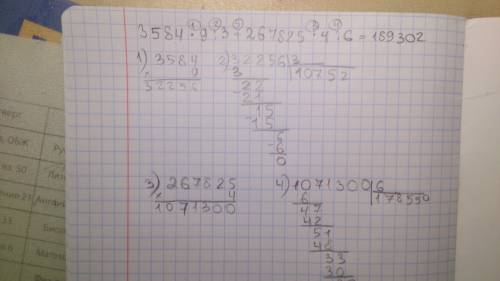 3584·9:3+267825·4:6=189302
1) 3584
× 9
32256
2) 32256|3
3 |10752
22
-21
15
-15
6
-6
0
3) 267825
× 4
1071300
4) 1071300|6
6 |178550
47
42
51
48
33
30